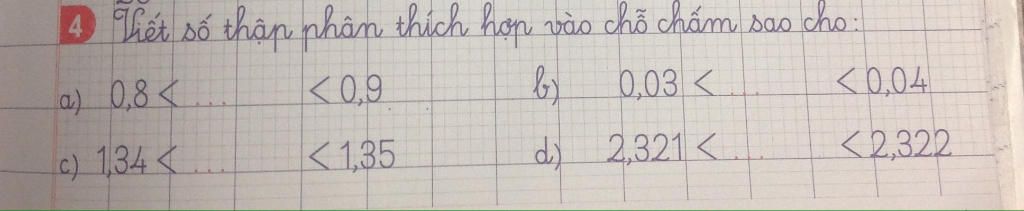 4 Viết số thập phân thích hợp vào chỗ chấm sao cho:
a) 0,8 < ... < 0,9 b) 0,03 < ... < 0,04
c) 1,34 < ... < 1,35 d) 2,321 < ... < 2,322